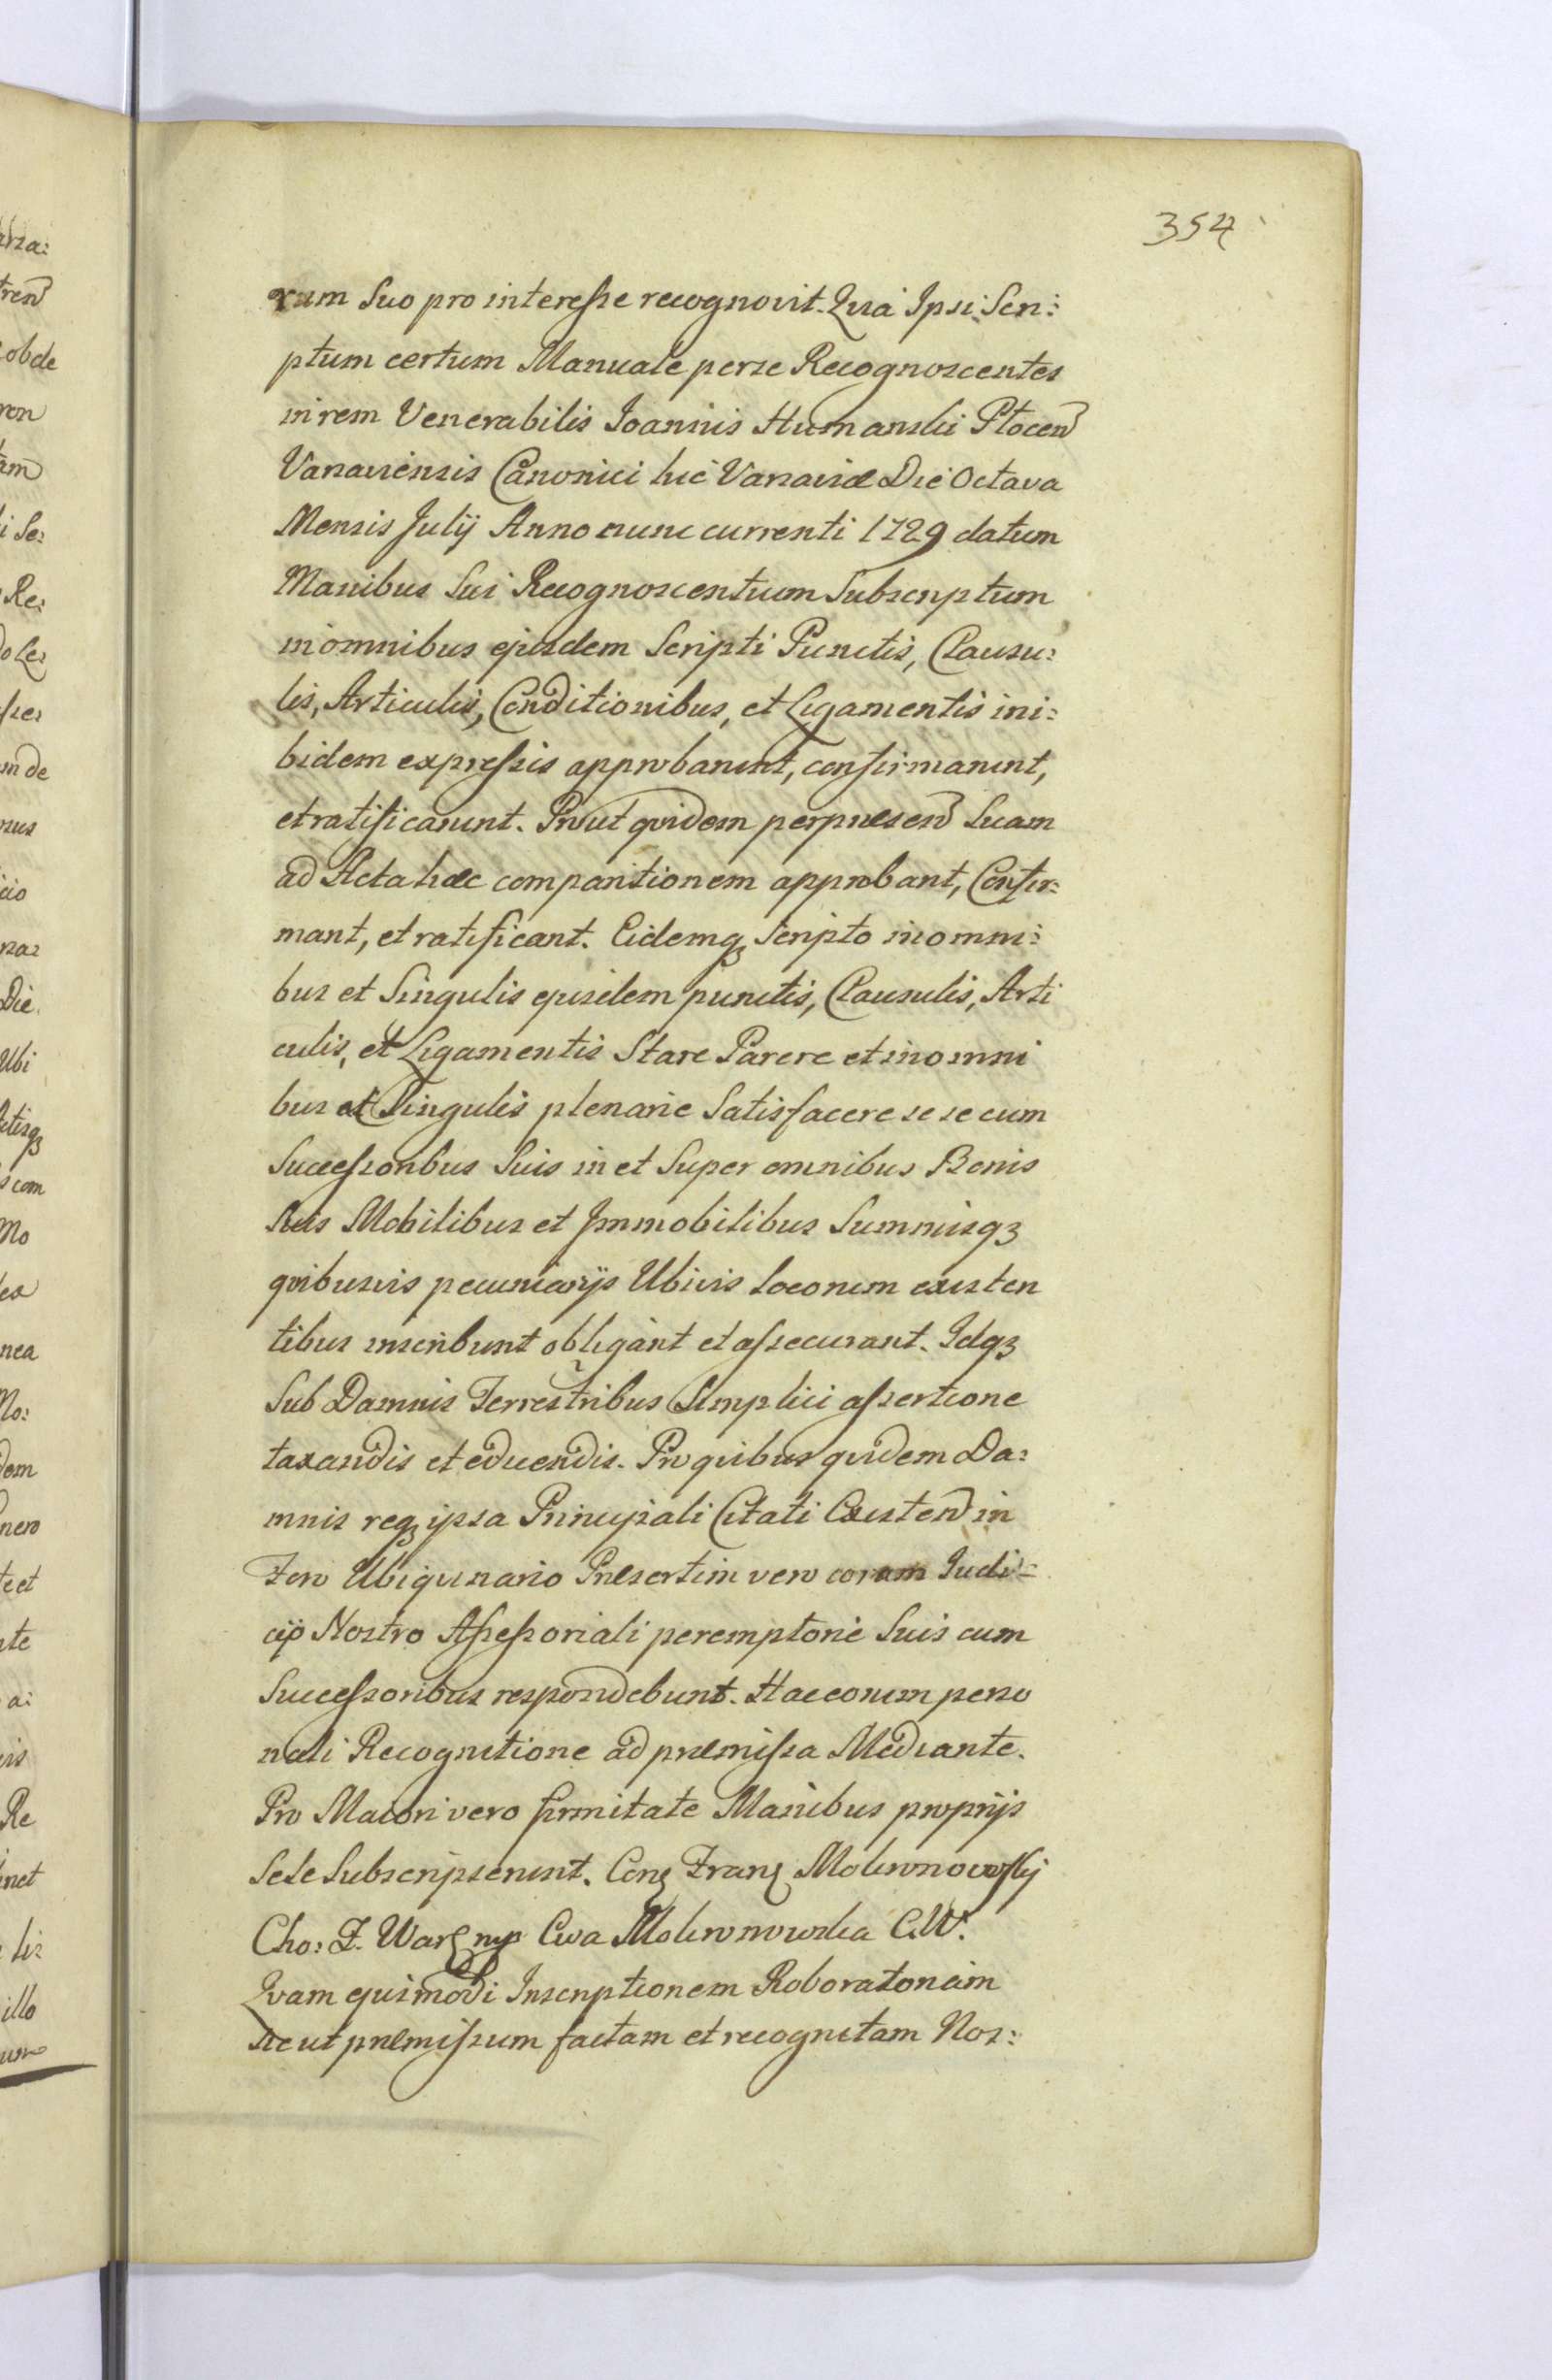 354
rum Suo pro interesse recognovit. Quia Ipsi Scri:
ptum certum Manuale per se Recognoscentes
in rem Venerabilis Joannis Humanski Płocen
Varsaviensis Canonici hic Varsaviæ Die Octava
Mensis Julij Anno nunc currenti 1729 datum
Manibus Sui Recognoscentium Subscriptum
in omnibus ejusdem Scripti Punctis, Clausu:
lis, Articulis, Conditionibus, et Ligamentis ini:
bidem expressis approbarunt, confirmarunt,
et ratificarunt. Prout quidem per præsen Suam
ad Acta hæc comparitionem approbant, Confir:
mant, et ratificant. Eidemq3 Scripto in omni:
bus et Singulis ejusdem punctis, Clausulis, Arti
culis, et Ligamentis Stare Parere et in omni
bus et Singulis plenarie Satisfacere se se cum
Successoribus Suis in et Super omnibus Bonis
Suis Mobilibus et Immobilibus Summisq3
quibusvis pecuniarijs Ubivis locorum existen
tibus inscribunt obligant et assecurant. Idq3
Sub Damnis Terrestribus Simplici assertione
taxandis et educendis. Pro quibus quidem Da:
mnis req3 ipsa Principali Citati Existen in
Foro Ubiquinario Præsertim vero coram Judi:
cijo Nostro Assessoriali peremptorie Suis cum
Successoribus respondebunt. Hac eorum perso
nali Recognitione ad præmissa Mediante.
Pro Maiori vero firmitate Manibus proprijs
Sese Subscripserunt. Mokronowskij
Cho: Z. Wars mp Ewa Mokronowska C. W.
Quam ejusmodi Inscriptionem Roboratoriam
sic ut præmissum factam et recognitam Nos: